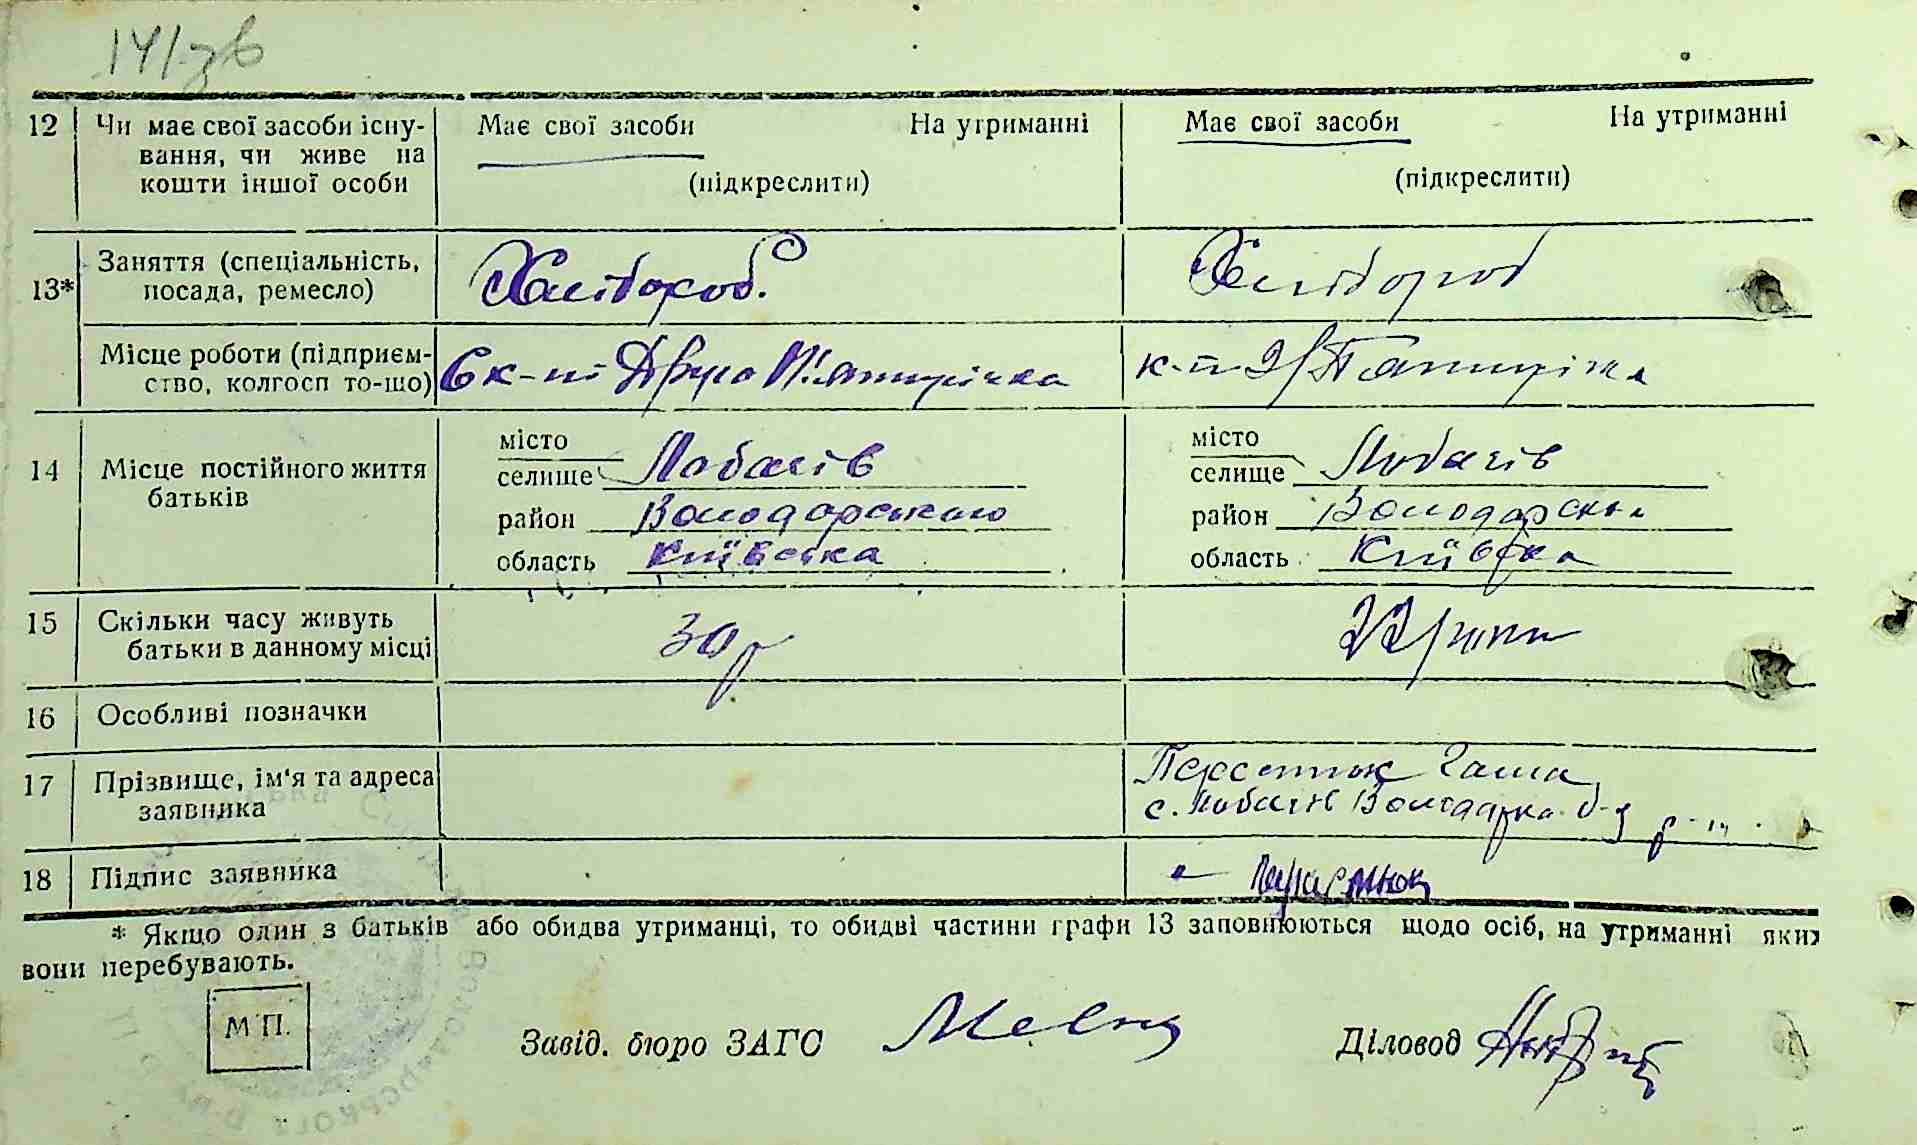 14/зв
12 Чи має свої засоби існу- Має свої засоби На утриманні Має свої засоби На утриманні
вання, чи живе на
кошти іншої особи (підкреслити) (підкреслити)
13* Заняття (спеціальність, Хлібороб. Хлібороб
посада, ремесло)
Місце роботи (підприєм- к-п Друга П'ятирічка к-п 2/П'ятирічка
ство, колгосп то-що)
14 Місце постійного життя місто місто
батьків селище Лобачів селище Лобачів
район Володарського район Володарськ
область Київська область Київська
15 Скільки часу живуть 30 р роки
батьки в данному місці
16 Особливі позначки
17 Прізвище, ім'я та адреса Галя
заявника с. Лобачів Володарка
18 Підпис заявника
* Якщо один з батьків або обидва утриманці, то обидві частини графи 13 заповнюються щодо осіб, на утриманні яких
вони перебувають.
М П.
Завід. бюро ЗАГС Діловод